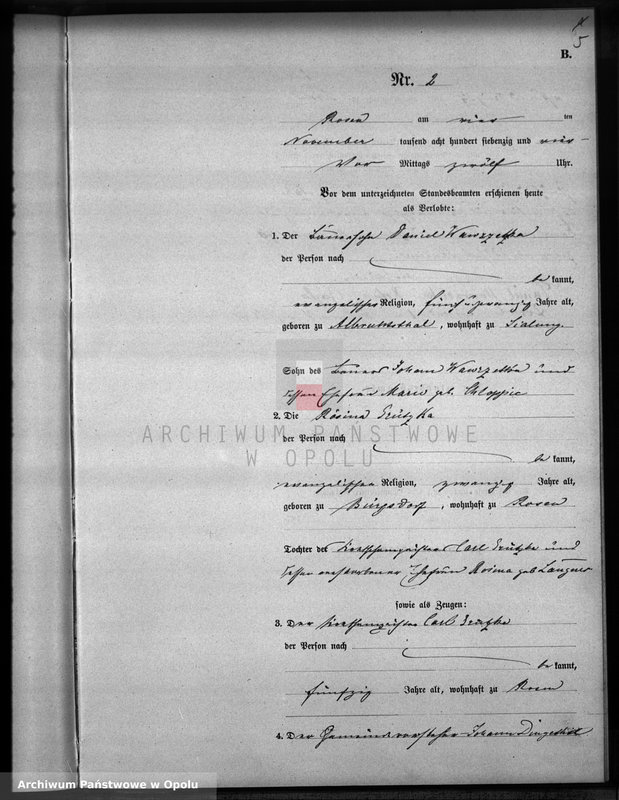 5
B.
Nr. 2
Rosen am vier ten
November tausend acht hundert siebenzig und vier
Vor Mittags zwölf Uhr.
Vor dem unterzeichneten Standesbeamten erschienen heute
als Verlobte:
1. Der Bauersohn Daniel Wawrzetzka
der Person nach
be kannt,
evangelischer Religion, fünf u zwanzig Jahre alt,
geboren zu Albrechtsthal, wohnhaft zu
Sohn des Bauers Johann Wawrzetzka und
dessen Ehefrau Marie geb.
2. Die Rosina Grützka
ARCHIWUM PAŃSTWOWE
W OPOLU
der Person nach
be kannt,
evangelischer Religion, zwanzig Jahre alt,
geboren zu Bürgsdorf, wohnhaft zu Rosen
Tochter des Carl Grützka und
dessen verstorbener Ehefrau Rosina geb
sowie als Zeugen:
3. Der Carl Grützka
der Person nach
be kannt,
fünfzig Jahre alt, wohnhaft zu Rosen
4. Der Gemeindevorsteher Johann
Archiwum Państwowe w Opolu